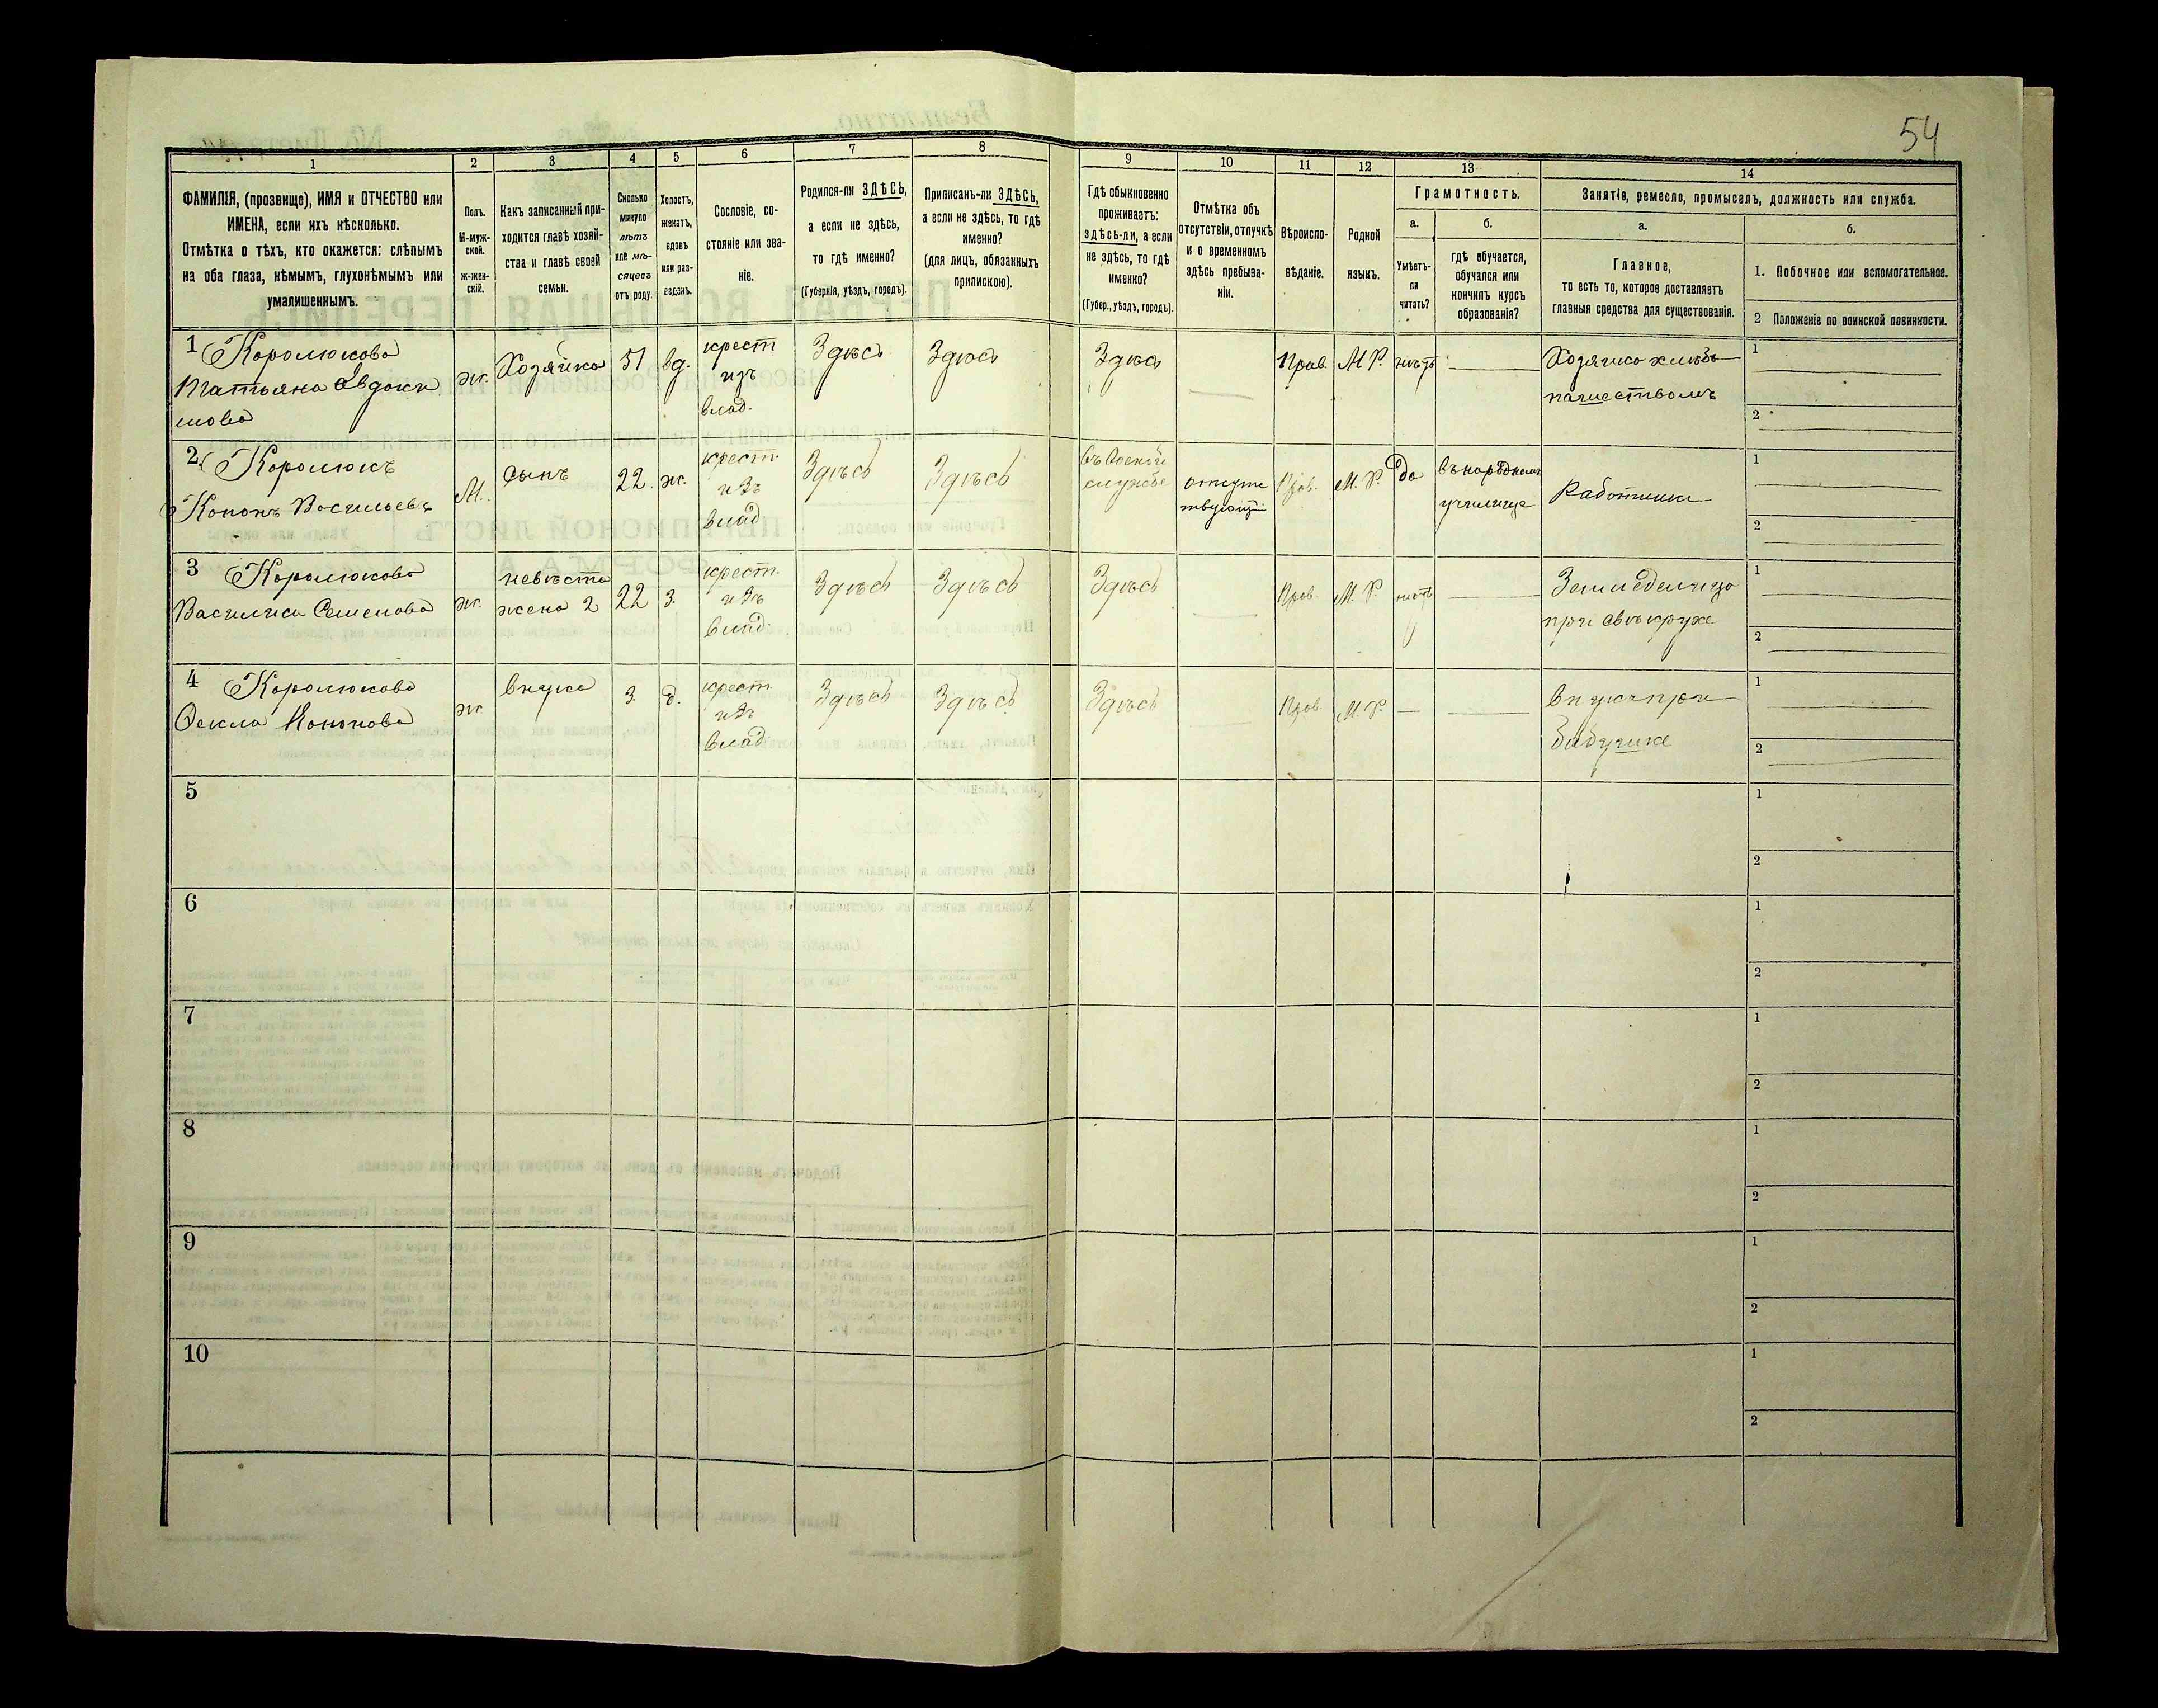 54
1
2
3
4
5
6
7
8
9
10
11
12
13
14
ФАМИЛІЯ, (прозвище), ИМЯ и ОТЧЕСТВО или
ИМЕНА, если ихъ нѣсколько.
Отмѣтка о тѣхъ, кто окажется: слѣпымъ
на оба глаза, нѣмымъ, глухонѣмымъ или
умалишеннымъ.
Полъ.
М-муж-
ской.
ж-жен-
скій.
Какъ записанный при-
ходится главѣ хозяй-
ства и главѣ своей
семьи.
Сколько
минуло
лѣтъ
или мѣ-
сяцевъ
отъ роду.
Холостъ,
женатъ,
вдовъ
или раз-
веденъ.
Сословіе, со-
стояніе или зва-
ніе.
Родился-ли ЗДѢСЬ,
а если не здѣсь,
то гдѣ именно?
(Губернія, уѣздъ, городъ).
Приписанъ-ли ЗДѢСЬ,
а если не здѣсь, то гдѣ
именно?
(для лицъ, обязанныхъ
припискою).
Гдѣ обыкновенно
проживаетъ:
здѣсь-ли, а если
не здѣсь, то гдѣ
именно?
(Губер., уѣздъ, городъ).
Отмѣтка объ
отсутствіи, отлучкѣ
и о временномъ
здѣсь пребыва-
ніи.
Вѣроиспо-
вѣданіе.
Родной
языкъ.
Грамотность.
а.
Умѣетъ-
ли
читать?
б.
гдѣ обучается,
обучался или
кончилъ курсъ
образованія?
Занятія, ремесло, промыселъ, должность или служба.
а.
Главное,
то есть то, которое доставляетъ
главныя средства для существованія.
б.
1. Побочное или вспомогательное.
2 Положеніе по воинской повинности.
1 Королюкова
Татьяна Авдоки
мова
ж.
Хозяйка
51
вд.
крест
изъ
влад.
Здѣсь
Здѣсь
Здѣсь
Прав.
М Р.
нѣтъ
Хозяйка хлѣбо
пашествомъ
1
2
2 Королюкъ
Кононъ Васильевъ
М.
сынъ
22.
ж.
крест.
изъ
влад
Здѣсь
Здѣсь
въ воєной
службе
отсутс
твующій
Прав.
М. Р.
да
въ народномъ
училище
Работникъ
1
2
3 Королюкова
Василиса Семенова
ж.
невѣста
жена 2
22
з.
крест.
изъ
влад.
Здѣсь
Здѣсь
Здѣсь
Прав.
М. Р.
нѣтъ
Земледелица
при свѣкрухе
1
2
4 Королюкова
Фекла Кононова
ж.
внука
3.
д.
крест.
изъ
влад.
Здѣсь
Здѣсь
Здѣсь
Прав.
М. Р.
внука при
бабушке
1
2
5
1
2
6
1
2
7
1
2
8
1
2
9
1
2
10
1
2